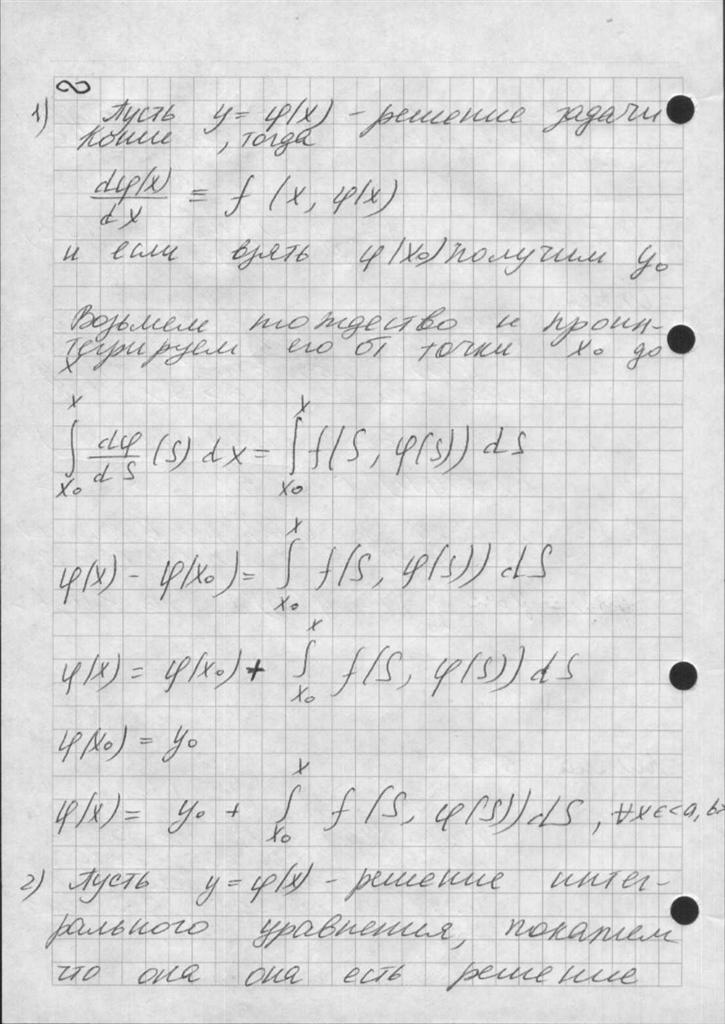 2
1) Пусть y = φ(x) - решение задачи
Коши , тогда
dφ(x)/dx ≡ f (x, φ(x)
и если взять φ(x₀) получим y₀
Возьмем тождество и проин-
тегрируем его от точки x₀ до
x
∫ₓ₀ˣ dφ/dS (S) dx = ∫ₓ₀ˣ f(S, φ(S)) dS
φ(x) - φ(x₀) = ∫ₓ₀ˣ f(S, φ(S)) dS
φ(x) = φ(x₀) + ∫ₓ₀ˣ f(S, φ(S)) dS
φ(x₀) = y₀
φ(x) = y₀ + ∫ₓ₀ˣ f (S, φ(S)) dS, ∀x∈<a, b>
2) Пусть y = φ(x) - решение интег-
рального уравнения, покажем
что она она есть решение